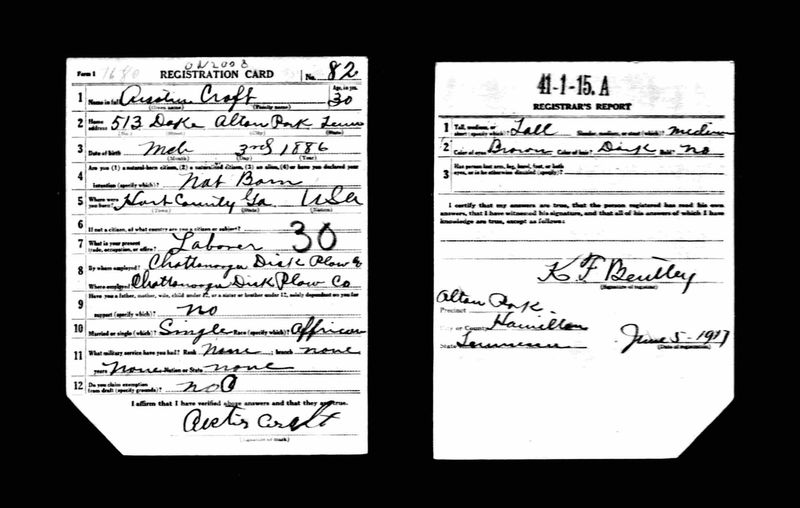 Form 1 1680 REGISTRATION CARD No. 82
1 Name in full Austin Croft Age, in yrs. 30
(Given name) (Family name)
2 Home address 513 Doke Alton Park Tenn
(No.) (Street) (City) (State)
3 Date of birth Mch 3rd 1886
(Month) (Day) (Year)
4 Are you (1) a natural-born citizen, (2) a naturalized citizen, (3) an alien, (4) or have you declared your
intention (specify which)? Nat Born
5 Where were you born? Hart County Ga USA
(Town) (State) (Nation)
6 If not a citizen, of what country are you a citizen or subject?
7 What is your present trade, occupation, or office? Laborer 30
8 By whom employed? Chattanooga Disk Plow Co
Where employed? Chattanooga Disk Plow Co
9 Have you a father, mother, wife, child under 12, or a sister or brother under 12, solely dependent on you for
support (specify which)? No
10 Married or single (which)? Single Race (specify which)? Affrican
11 What military service have you had? Rank None ; branch none
years None Nation or State none
12 Do you claim exemption from draft (specify grounds)? no
I affirm that I have verified above answers and that they are true.
41-1-15. A
REGISTRAR'S REPORT
1 Tall, medium, or short (specify which)? Tall Slender, medium, or stout (which)? medium
2 Color of eyes Brown Color of hair? Dark Bald? No
3 Has person lost arm, leg, hand, foot, or both
eyes, or is he otherwise disabled (specify)?
I certify that my answers are true, that the person registered has read his own
answers, that I have witnessed his signature, and that all of his answers of which I have
knowledge are true, except as follows:
K F Bentley
(Signature of registrar)
Alton Park
Precinct
City or County Hamilton
State Tennessee June 5-1917
(Date of registration)